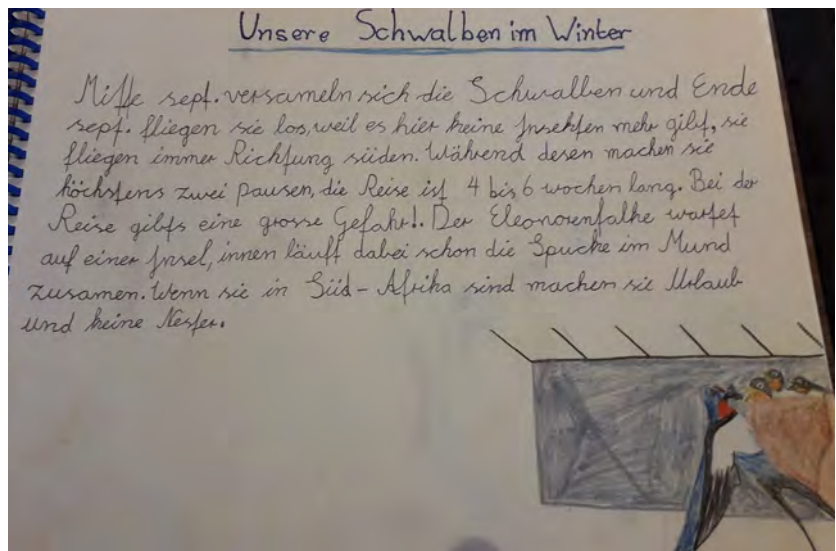 Unsere Schwalben im Winter
Mitte sept. versameln sich die Schwalben und Ende
sept. fliegen sie los, weil es hier keine Insekten mehr gibt, sie
fliegen immer Richtung süden. Während desen machen sie
höchstens zwei pausen, die Reise ist 4 bis 6 wochen lang. Bei der
Reise gibts eine grosse Gefahr!. Der Eleonorenfalke wartet
auf einer Insel, innen läuft dabei schon die Spucke im Mund
zusamen. Wenn sie in Süd-Afrika sind machen sie Urlaub
und keine Nester.